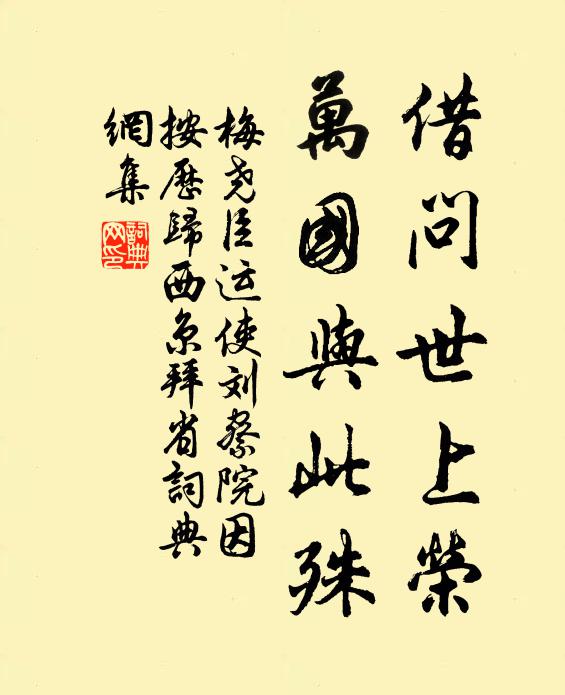 借问世上榮
萬國與此殊
梅尧臣运使刘察院因
按歷歸西京拜省詞典
網集
詞典
网印